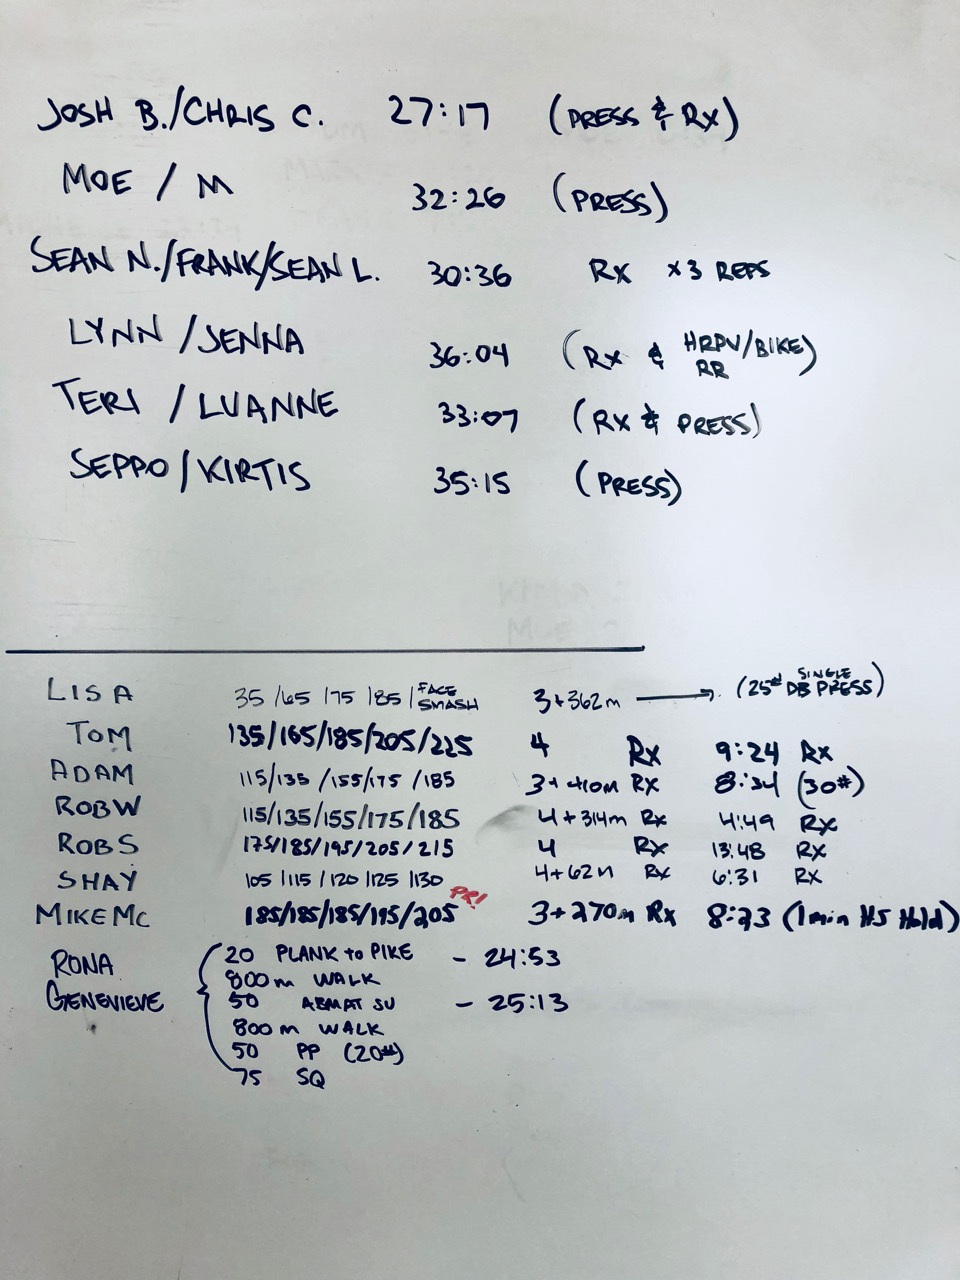 JOSH B./CHRIS C. 27:17 (PRESS & Rx)
MOE / M 32:26 (PRESS)
SEAN N./FRANK/SEAN L. 30:36 Rx x3 REPS
LYNN / JENNA 36:04 (Rx & HRPU/BIKE)
RR
TERI / LUANNE 33:07 (Rx & PRESS)
SEPPO / KIRTIS 35:15 (PRESS)
LISA 35 /65 /75 /85 / FACE SMASH 3+362m → (25# SINGLE DB PRESS)
TOM 135/165/185/205/225 4 Rx 9:24 Rx
ADAM 115/135 /155/175 /185 3+410m Rx (30#)
ROB W 115/135/155/175/185 4+314m Rx 4:49 Rx
ROB S 175/185/195/205/215 4 Rx 13:48 Rx
SHAY 105 /115 /120 /125 /130 4+62m Rx 6:31 Rx
MIKE MC 185/185/185/195/205 PR! 3+270m Rx 8:23 (1 min HS Hold)
RONA 20 PLANK to PIKE - 24:53
800m WALK
GENEVIEVE 50 ABMAT SU - 25:13
800m WALK
50 PP (20#)
75 SQ